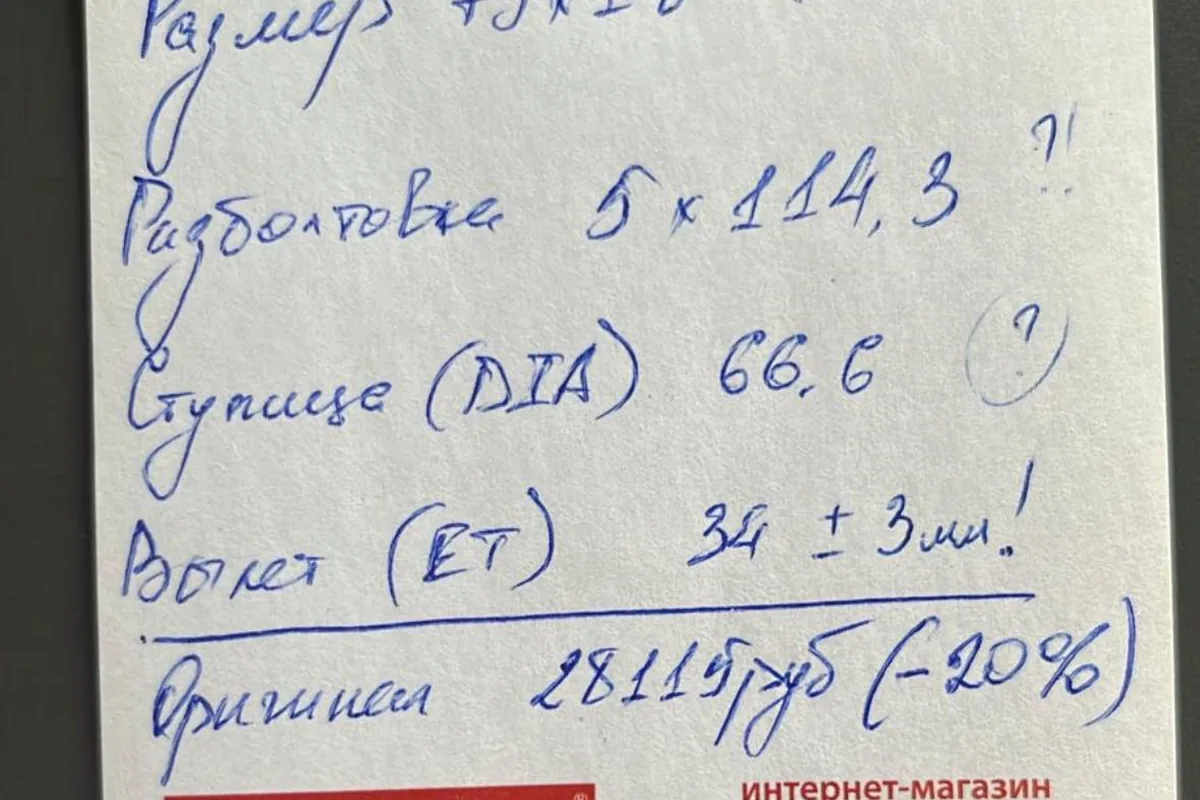 Размер
Разболтовка 5 x 114,3 ?!
Ступица (DIA) 66.6 ?
Вылет (ET) 34 ± 3мм!
Оригинал 28115руб (-20%)
® интернет-магазин